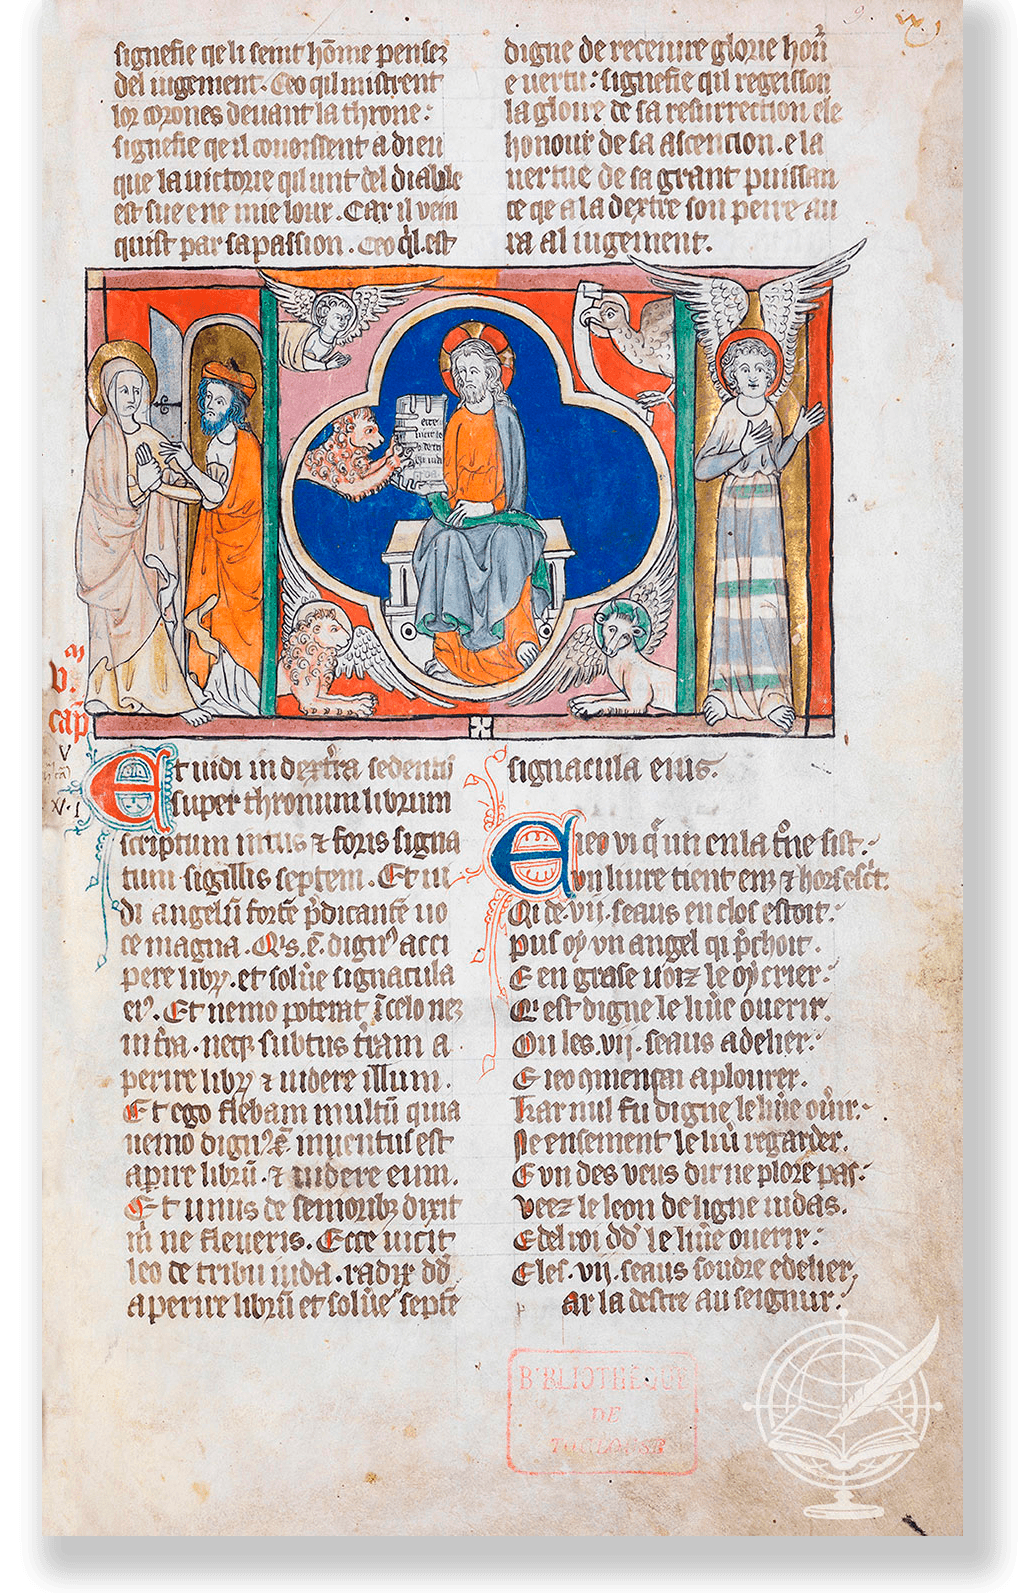 signefie qe li seint home pensez
del iugement. Ceo qil mistrent
lor corones deuant la throne:
signefie qe il conoissent a dieu
que la uictorie qil unt del diable
est sue e ne mie lour. Car il uein
quist par sa passion. Ceo q'l est
digne de receiure glorie hon
e uertu: signefie qil regeisson
la gloire de sa resurrection e le
honour de sa ascencion. e la
uertue de sa grant puissan
ce qe a la dextre son peire au
ra al iugement.
ecce
uicit leo
v.
cap
V
Et uidi in dextra sedentis
super thronum librum
scriptum intus & foris signa
tum sigillis septem. Et ui
di angelū fortē p̄dicantē uo
ce magna. Q's ē dign⁹ acci
pere libꝝ. et solūe signacula
ei⁹. Et nemo poterat ī celo neqꝫ
in t̄ra. neqꝫ subtus t̄ram a
perire libꝝ & uidere illum.
Et ego flebam multū quia
nemo dign⁹ ē inuentus est
apire librū. & uidere eum.
Et unus de senioribꝫ dixit
m̄ ne fleueris. Ecce uicit
leo de tribu iuda. radix dd̄
aperire librū et solūe septē
signacula eius.
E ieo vi q̄ un en la t̄ne sist.
vn liure tient enz & hors esc̄t.
Qi de .vij. seaus enclos estoit.
puis oy vn angel qi p̄choit.
E en grase uoiz le oy crier.
Qi est digne le liūe ouerir.
Ou les .vij. seaus adelier.
E ieo comensai a plourer.
kar nul fu digne le liūe oūir.
Ne ensement le liū regarder.
E vn des veus dit ne plore pas.
veez le leon de ligne iudas.
E del roi dd̄ le liūe ouerir.
E les .vij. seaus soudre e delier,
ar la destre au seignur.
BIBLIOTHEQUE
DE
TOULOUSE